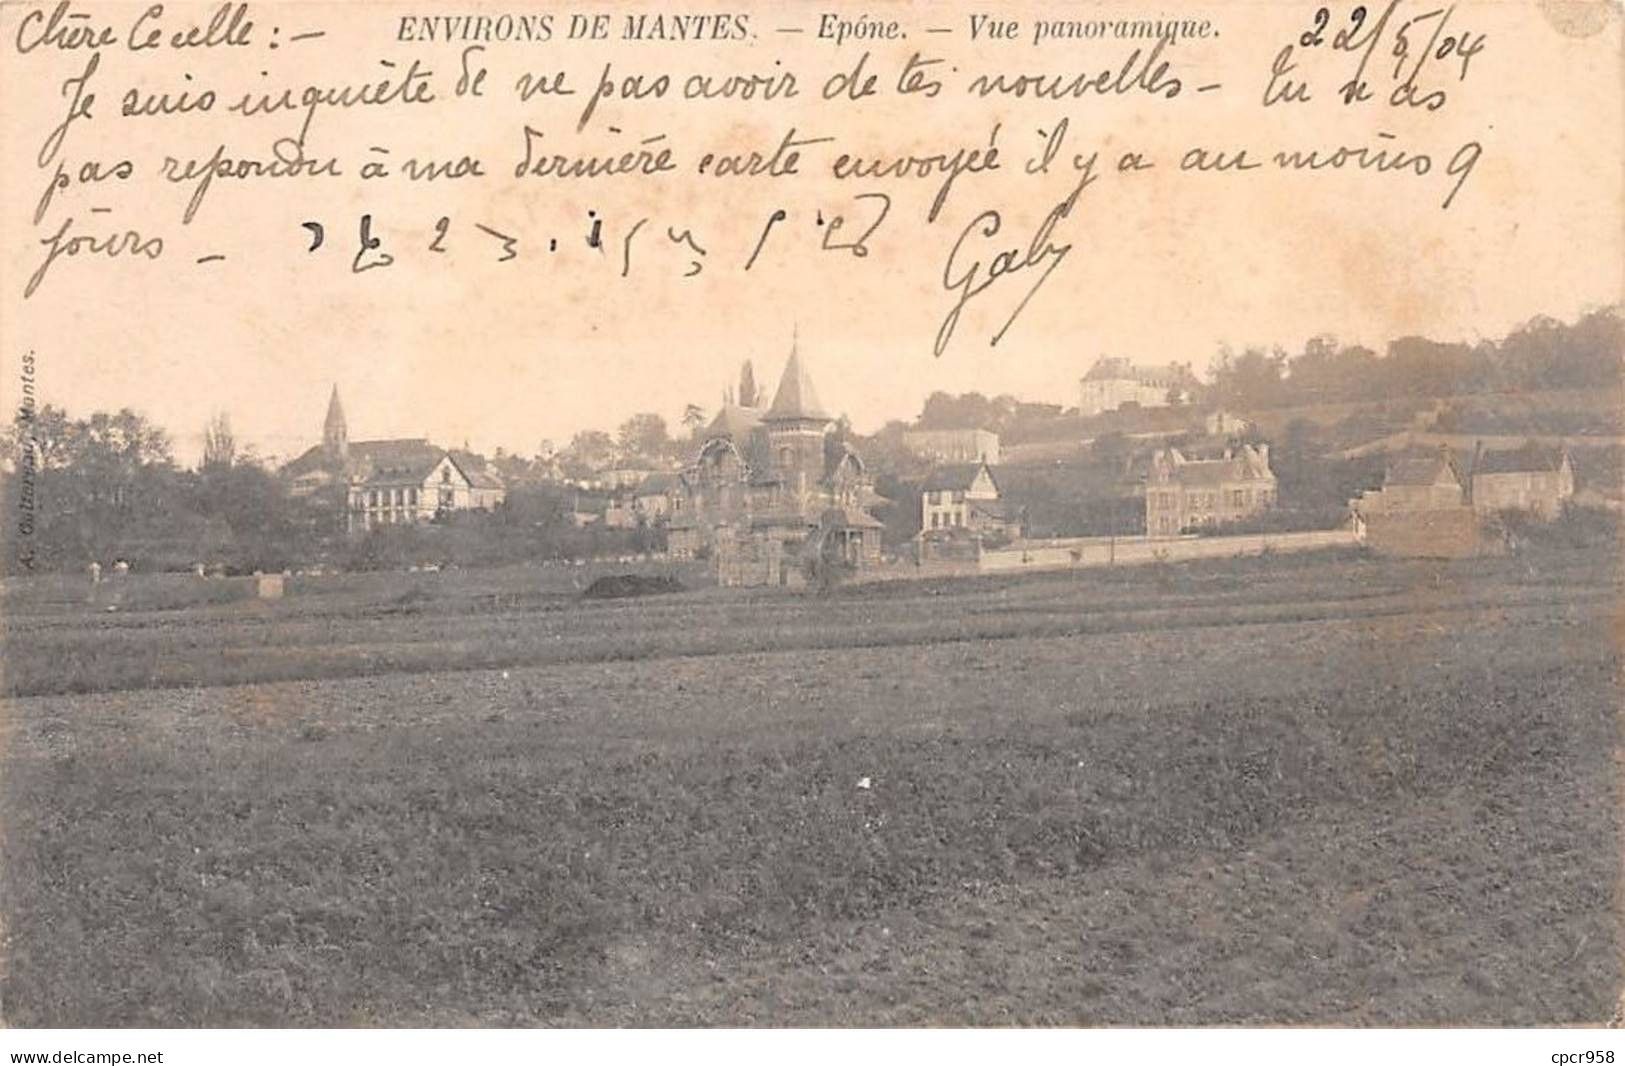 Chère Cecelle : –
ENVIRONS DE MANTES. — Epône. — Vue panoramique.
22/5/04
Je suis inquiète de ne pas avoir de tes nouvelles – Tu n'as
pas repondu à ma dernière carte envoyée il y a au moins 9
jours –
Gaby
Mantes.
delcampe.net
cpcr958